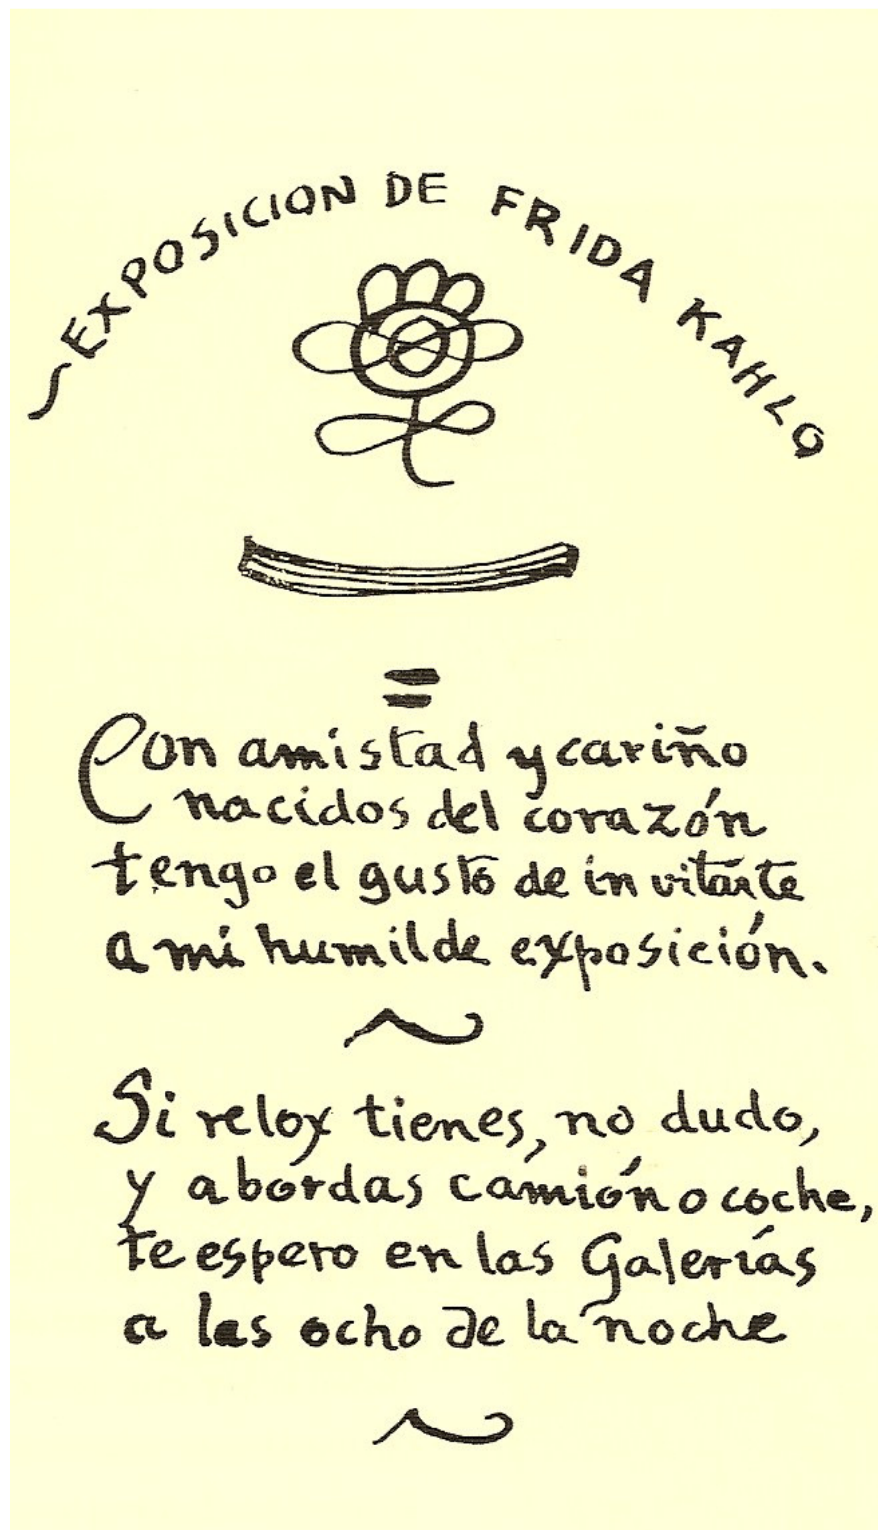 EXPOSICION DE FRIDA KAHLO
Con amistad y cariño
nacidos del corazón
tengo el gusto de invitarte
a mi humilde exposición.
Si relox tienes, no dudo,
y abordas camión o coche,
te espero en las Galerías
a las ocho de la noche